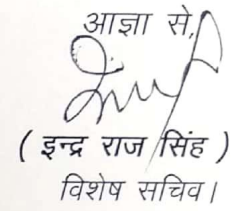 आज्ञा से,
( इन्द्र राज सिंह )
विशेष सचिव।